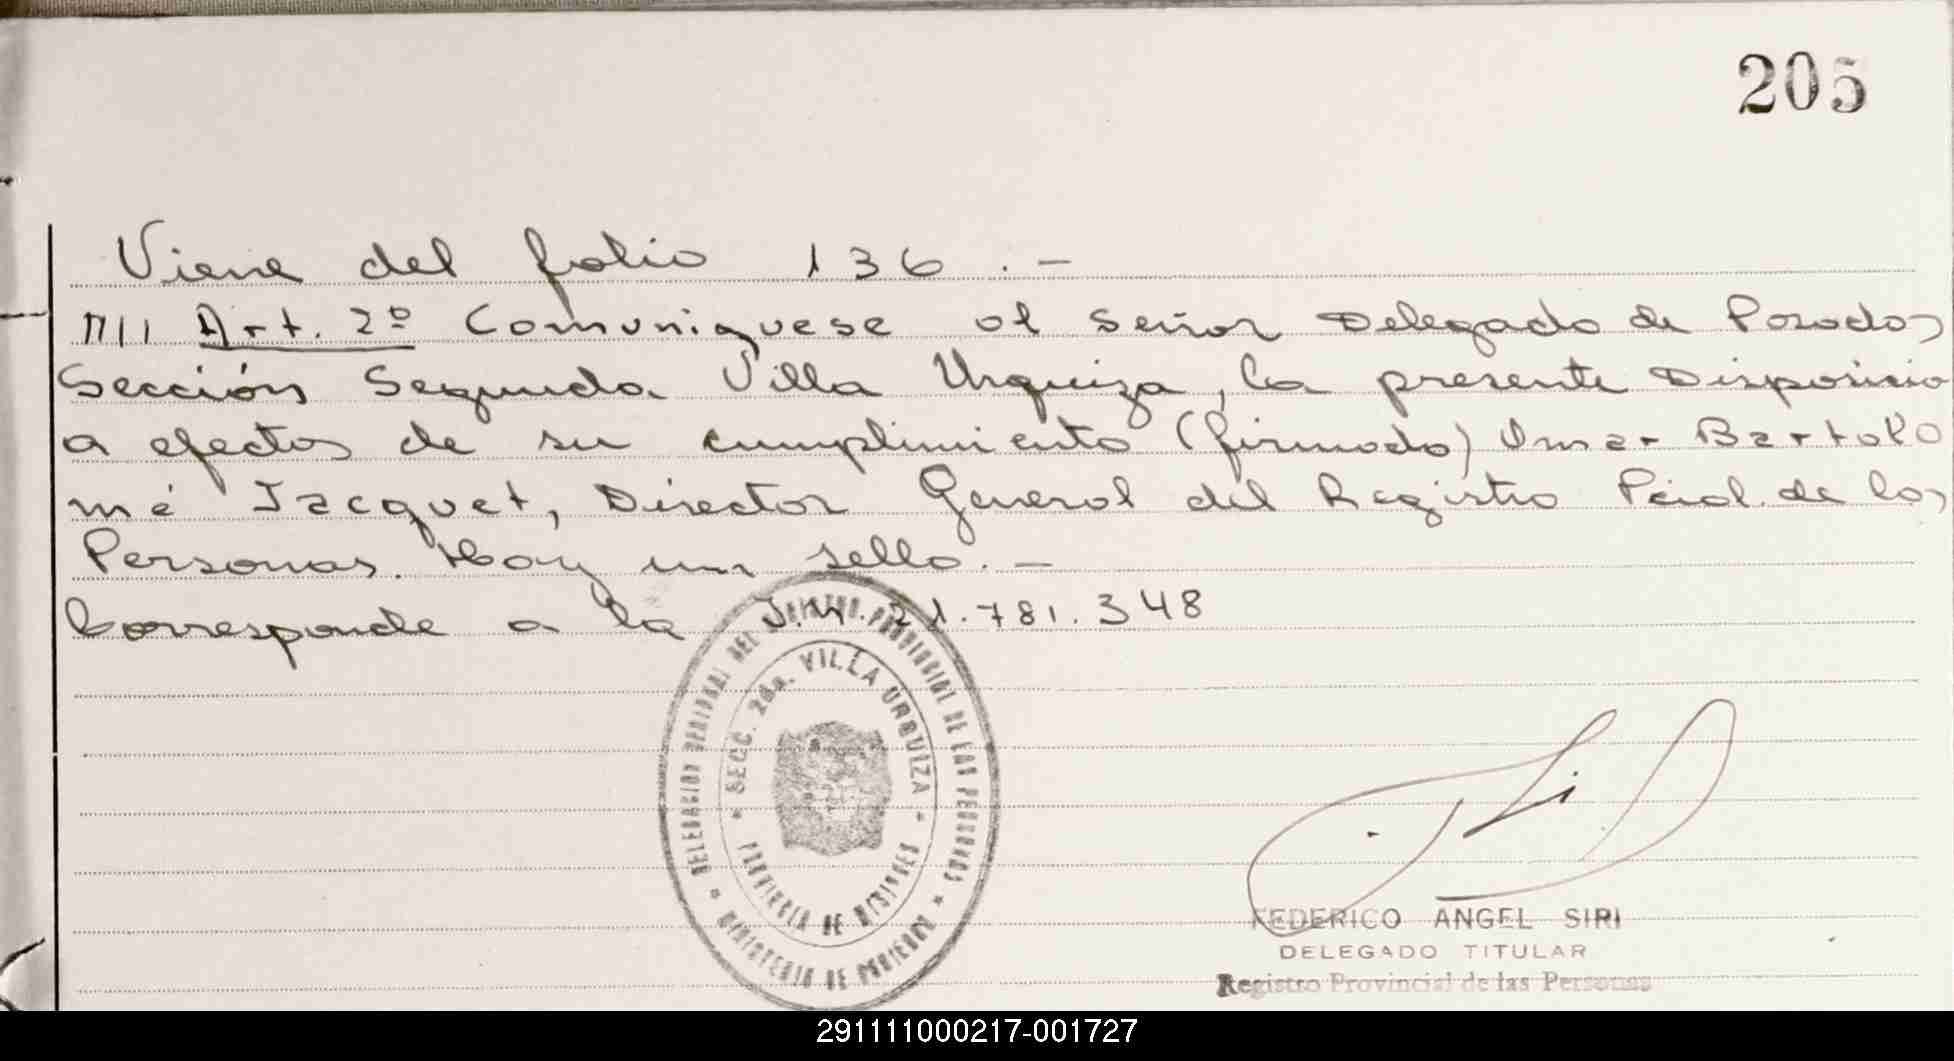 205
Viene del folio 136.-
/// Art. 2º Comuniquese al Señor Delegado de Posadas
Sección Segunda Villa Urquiza, la presente Disposicio
a efectos de su cumplimiento (firmado) Omar Bartolo
mé Jacquet, Director General del Registro Pcial. de las
Personas. Hay un sello.-
Corresponde a la 21.781.348
DELEGACION DEL REGISTRO PROVINCIAL DE LAS PERSONAS
SECC. 2da. VILLA URQUIZA
PROVINCIA DE MISIONES
MINISTERIO DE GOBIERNO
FEDERICO ANGEL SIRI
DELEGADO TITULAR
Registro Provincial de las Personas
291111000217-001727